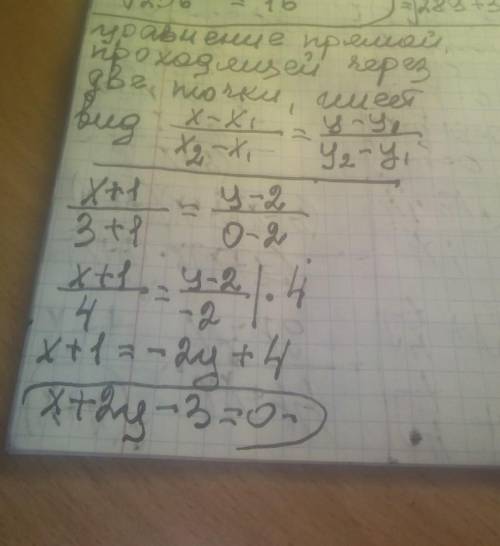 = 16
уравнение прямой,
проходящей через
две точки, имеет
вид (x-x₁)/(x₂-x₁) = (y-y₁)/(y₂-y₁)
(x+1)/(3+1) = (y-2)/(0-2)
(x+1)/4 = (y-2)/-2 | · 4
x+1 = -2y+4
x+2y-3=0